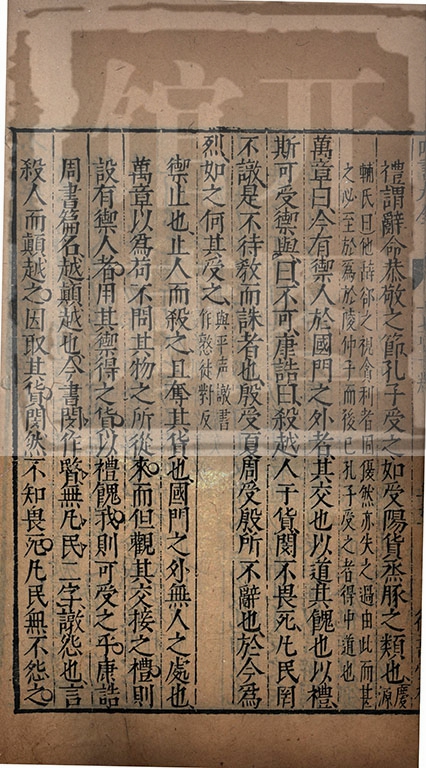 禮謂辭命恭敬之節孔子受之如受陽貨烝豚之類也慶源
輔氏曰他辭卻之視貪利者固優然亦失之過由此而甚
之必至於為於陵仲子而後已孔子受之者得中道也
萬章曰今有禦人於國門之外者其交也以道其餽也以禮
斯可受禦與曰不可康誥曰殺越人于貨閔不畏死凡民罔
不譈是不待教而誅者也殷受夏周受殷所不辭也於今為
烈如之何其受之與平聲譈書作憝徒對反
禦止也止人而殺之且奪其貨也國門之外無人之處也
萬章以為苟不問其物之所從來而但觀其交接之禮則
設有禦人者用其禦得之貨以禮餽我則可受之乎康誥
周書篇名越顛越也今書閔作暋無凡民二字譈怨也言
殺人而顛越之因取其貨閔然不知畏死凡民無不怨之